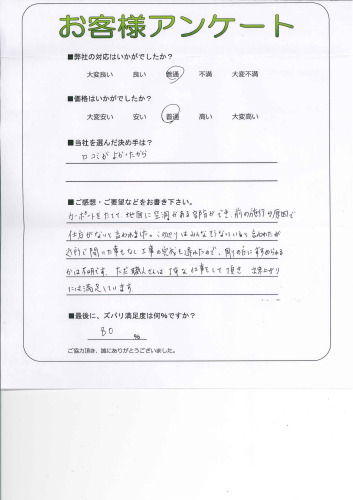 お客様アンケート
■弊社の対応はいかがでしたか？
大変良い 良い 普通 不満 大変不満
■価格はいかがでしたか？
大変安い 安い 普通 高い 大変高い
■当社を選んだ決め手は？
口コミがよかったから
■ご感想・ご要望などをお書き下さい。
カーポートをたてて、地面に空洞がある箇所ができ、前の施行が原因で
仕方がないと言われました。このあたりはみんなそうなっていると言われたが
近所で聞いた事もなく工事の完成を遅れたので、周りの方にすすめられる
かは不明です。ただ職人さんは丁寧な仕事をして頂き 仕上がり
には満足しています
■最後に、ズバリ満足度は何%ですか？
80 %
ご協力頂き、誠にありがとうございました。